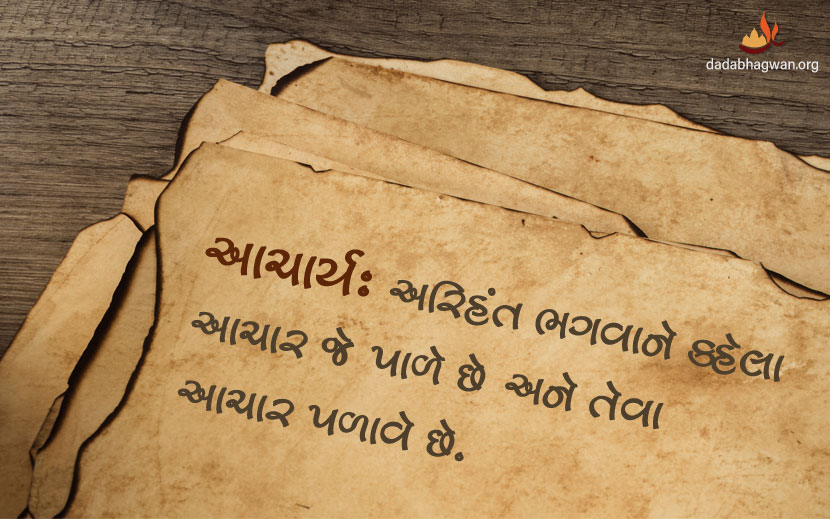 dadabhagwan.org
આચાર્ય: અરિહંત ભગવાને કહેલા
આચાર જે પાળે છે અને તેવા
આચાર પળાવે છે.